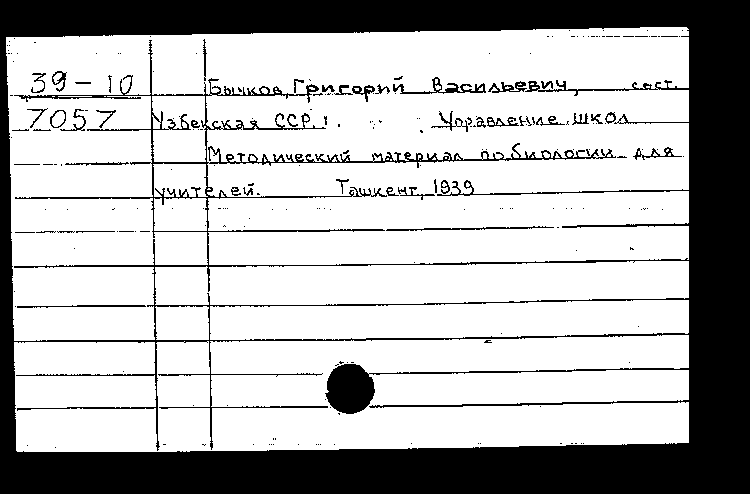 39-10 Бычков, Григорий Васильевич, сост.
7057 Узбекская ССР. 1. Управление школ
Методический материал по биологии для
учителей. Ташкент, 1939